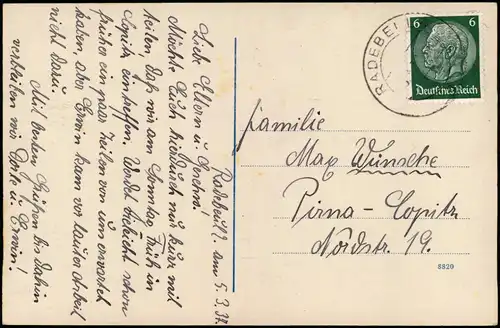 Radebeul 2. am 5.3.37.
Liebe Eltern u. Gerda!
Möchte Euch hierdurch nur kurz mit-
teilen daß wir am Sonntag früh in
Copitz eintreffen. Werdet vielleicht schon
früher ein paar Zeilen von uns erwartet
haben, aber Erwin kam vor lauter Arbeit
nicht dazu.
Mit besten Grüßen bis dahin
verbleiben wir Dorle u. Erwin!
RADEBEUL
6 6
Deutsches Reich
Familie
Max Wünsche
Pirna-Copitz
Nordstr. 19.
8829